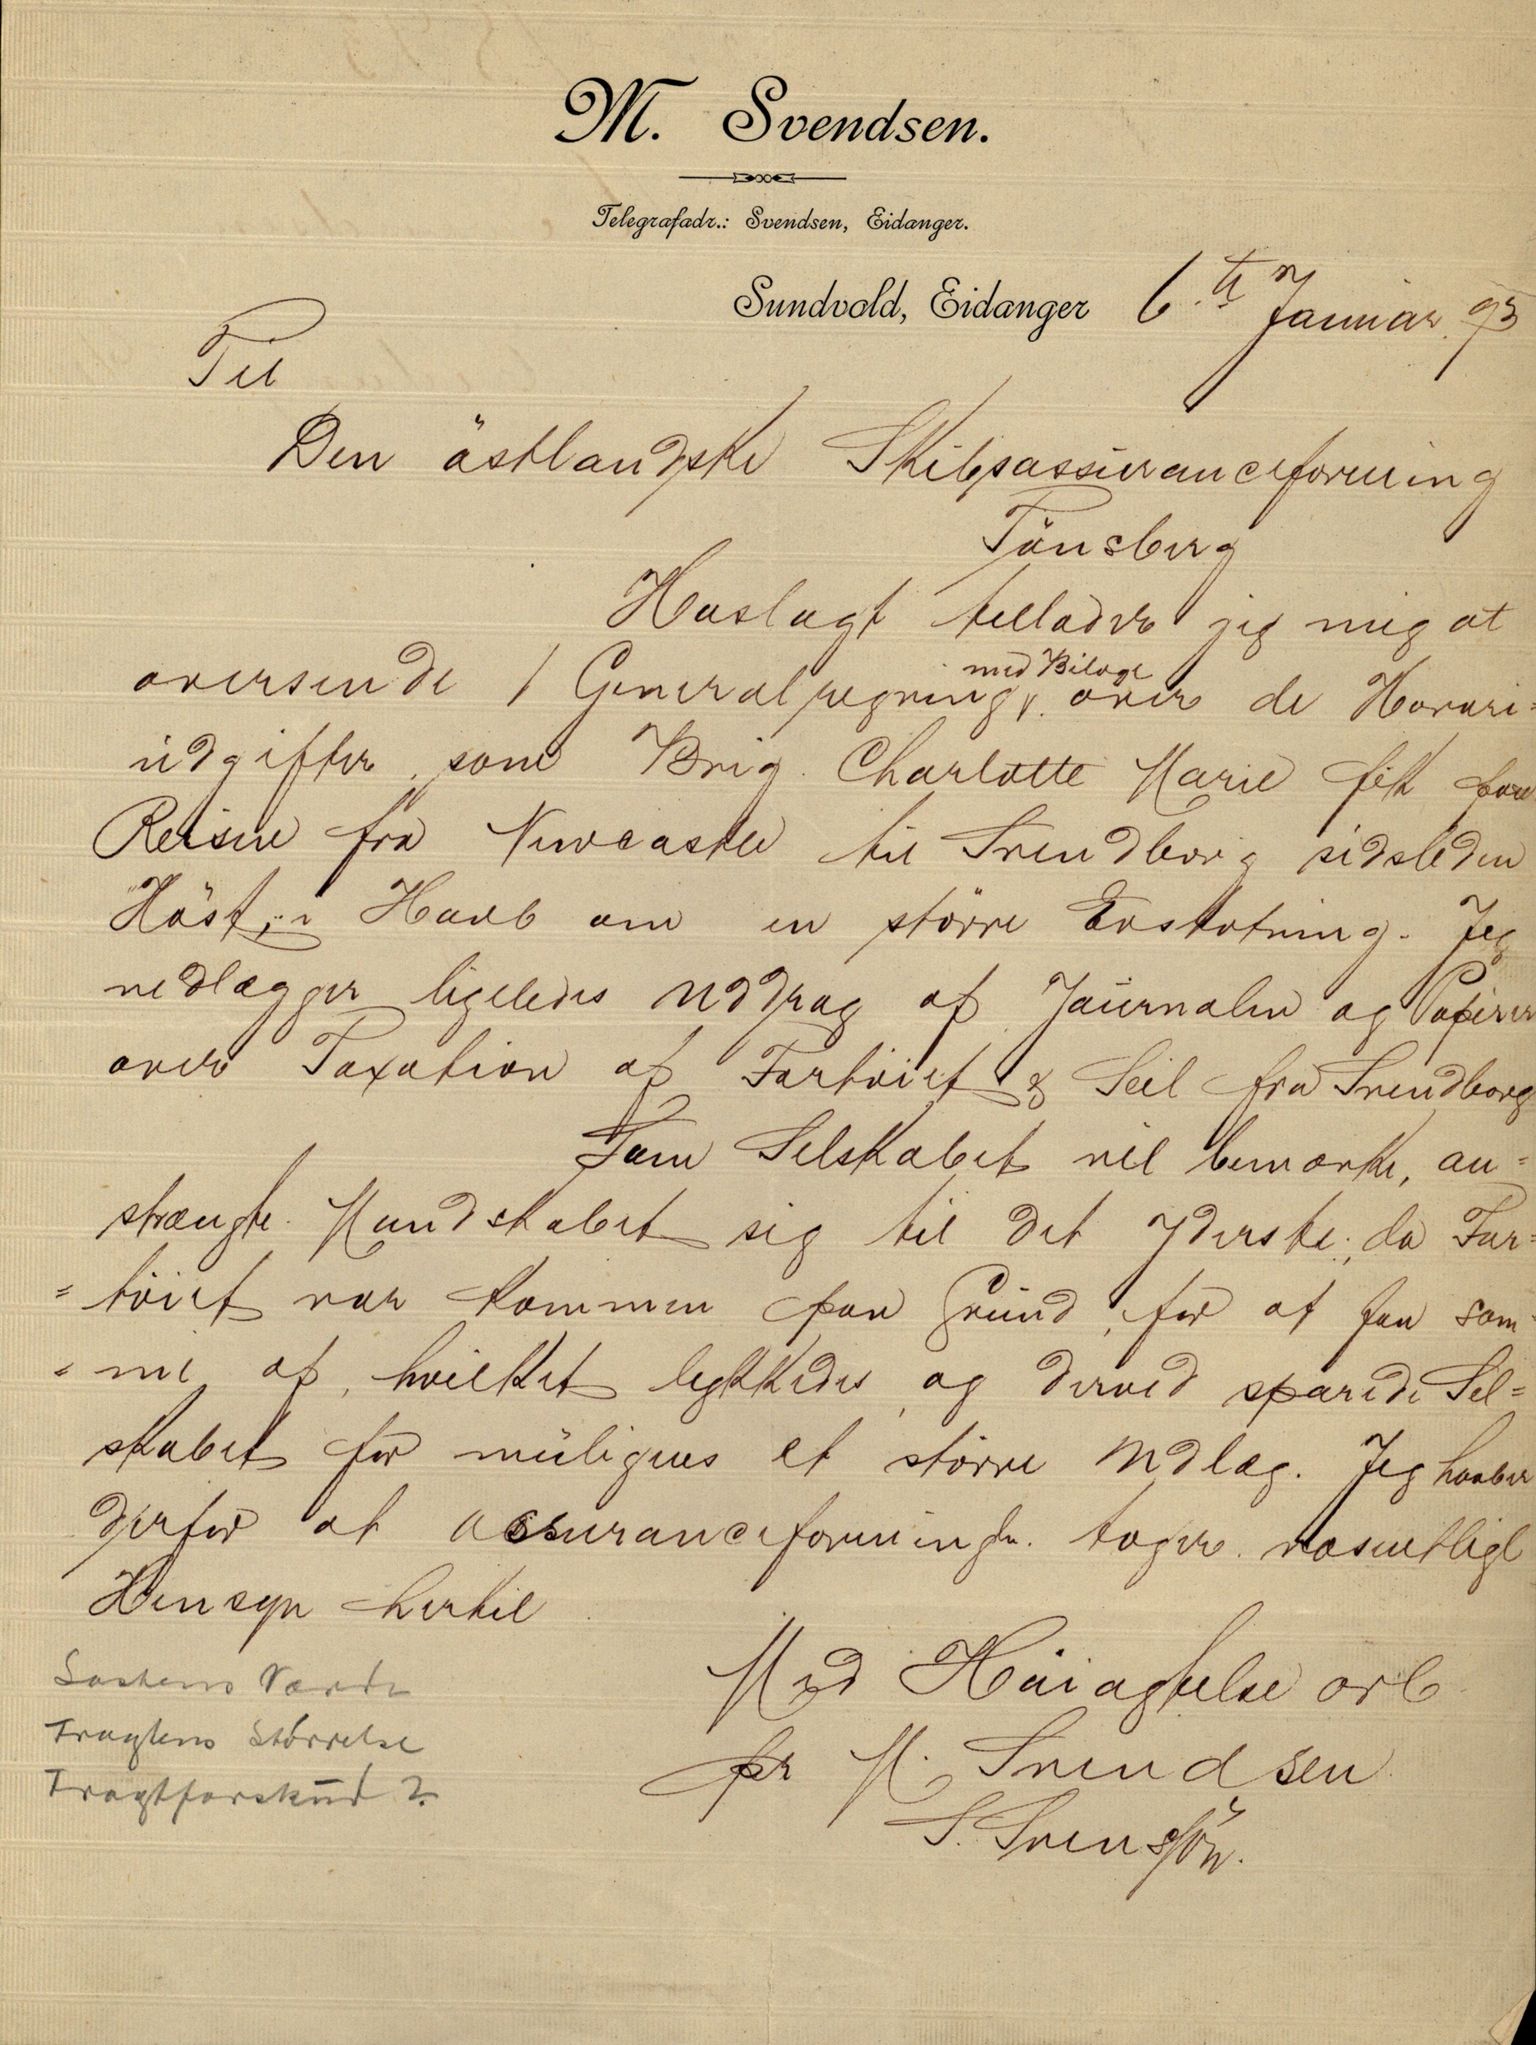 M. Svendsen.
Telegrafadr.: Svendsen, Eidanger.
Sundvold, Eidanger 6.te Januar. 93
Til
Den östlandske Skibsassuranceforening
Tönsberg
Hoslagt tillader jeg mig at
oversende 1 Generalregning over de Havari=
med Bilage
udgifter som Brig. Charlotte Marie fik paa
Reisen fra Newcastle til Svendborg sidsleden
Höst, i Haab om en större Erstatning. Jeg
vedlægger ligeledes Uddrag af Journalen og Papirer
over Taxation af Fartöiet & Seil fra Svendborg
Som Selskabet vil bemærke, an=
strængte Mandskabet sig til det yderste, da Far=
=töiet var kommen paa Grund, for at faa sam=
=me af, hvilket lykkedes og derved sparede Sel=
skabet for muligens et större Udlæg. Jeg haaber
derfor at Assuranceforeningen tager væsentligt
Hensyn hertil
Med Höiagtelse arb
pr M. Svendsen
S. Svensson.
Lastens Værdi
Fragtens Störrelse
Fragtforskud?